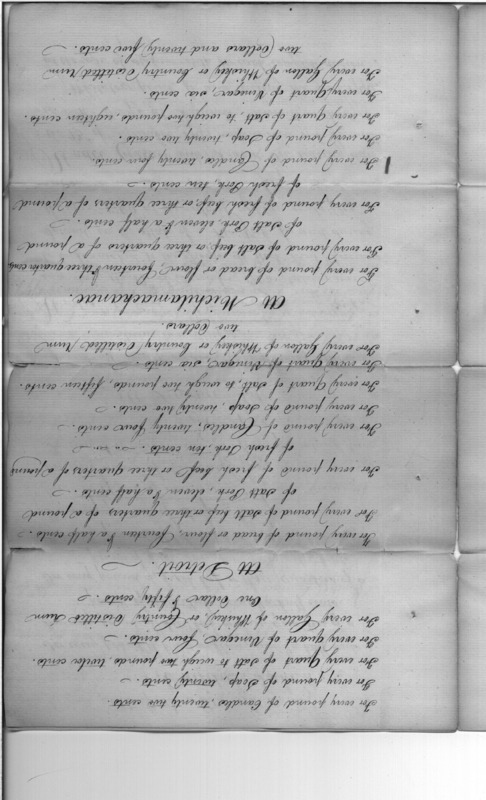 For every pound of Candles, twenty two cents.
For every pound of Soap, twenty cents.
For every Quart of Salt to weigh two pounds, twelve cents.
For every quart of Vinegar, four cents.
For every Gallon of Whiskey, or Country Distilled Rum
One Dollar & fifty cents.
At Detroit.
For every pound of bread or flour, fourteen & a half cents.
For every pound of Salt beef or three quarters of a pound
of Salt Pork, eleven & a half cents.
For every pound of fresh beef or three quarters of a pound
of fresh Pork, ten cents.
For every pound of Candles, twenty four cents.
For every pound of Soap, twenty two cents.
For every Quart of Salt, to weigh two pounds, fifteen cents.
For every Quart of Vinegar, six cents.
For every Gallon of Whiskey or Country Distilled Rum
two Dollars.
At Michilamackanac.
For every pound of bread or flour, fourteen & three quarter cents
For every pound of Salt beef, or three quarters of a pound
of Salt Pork, eleven & a half cents.
For every pound of fresh beef, or three quarters of a pound
of fresh Pork, ten cents.
For every pound of Candles, twenty four cents.
For every pound of Soap, twenty two cents.
For every quart of Salt to weigh two pounds, eighteen cents.
For every Quart of Vinegar, six cents.
For every Gallon of Whiskey or Country Distilled Rum
two Dollars and twenty five cents.